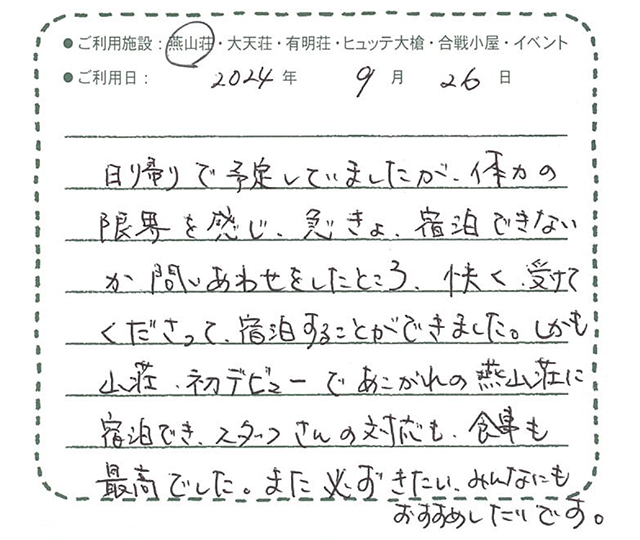 ●ご利用施設：燕山荘・大天荘・有明荘・ヒュッテ大槍・合戦小屋・イベント
●ご利用日： 2024 年 9 月 26 日
日り帰りで予定していましたが、体力の
限界を感じ、急きょ、宿泊できない
か問いあわせをしたところ、快く、受けて
くださって、宿泊することができました。しかも
山荘、初デビューであこがれの燕山荘に
宿泊でき、スタッフさんの対応も、食事も
最高でした。また必ずきたい、みんなにも
おすすめしたいです。